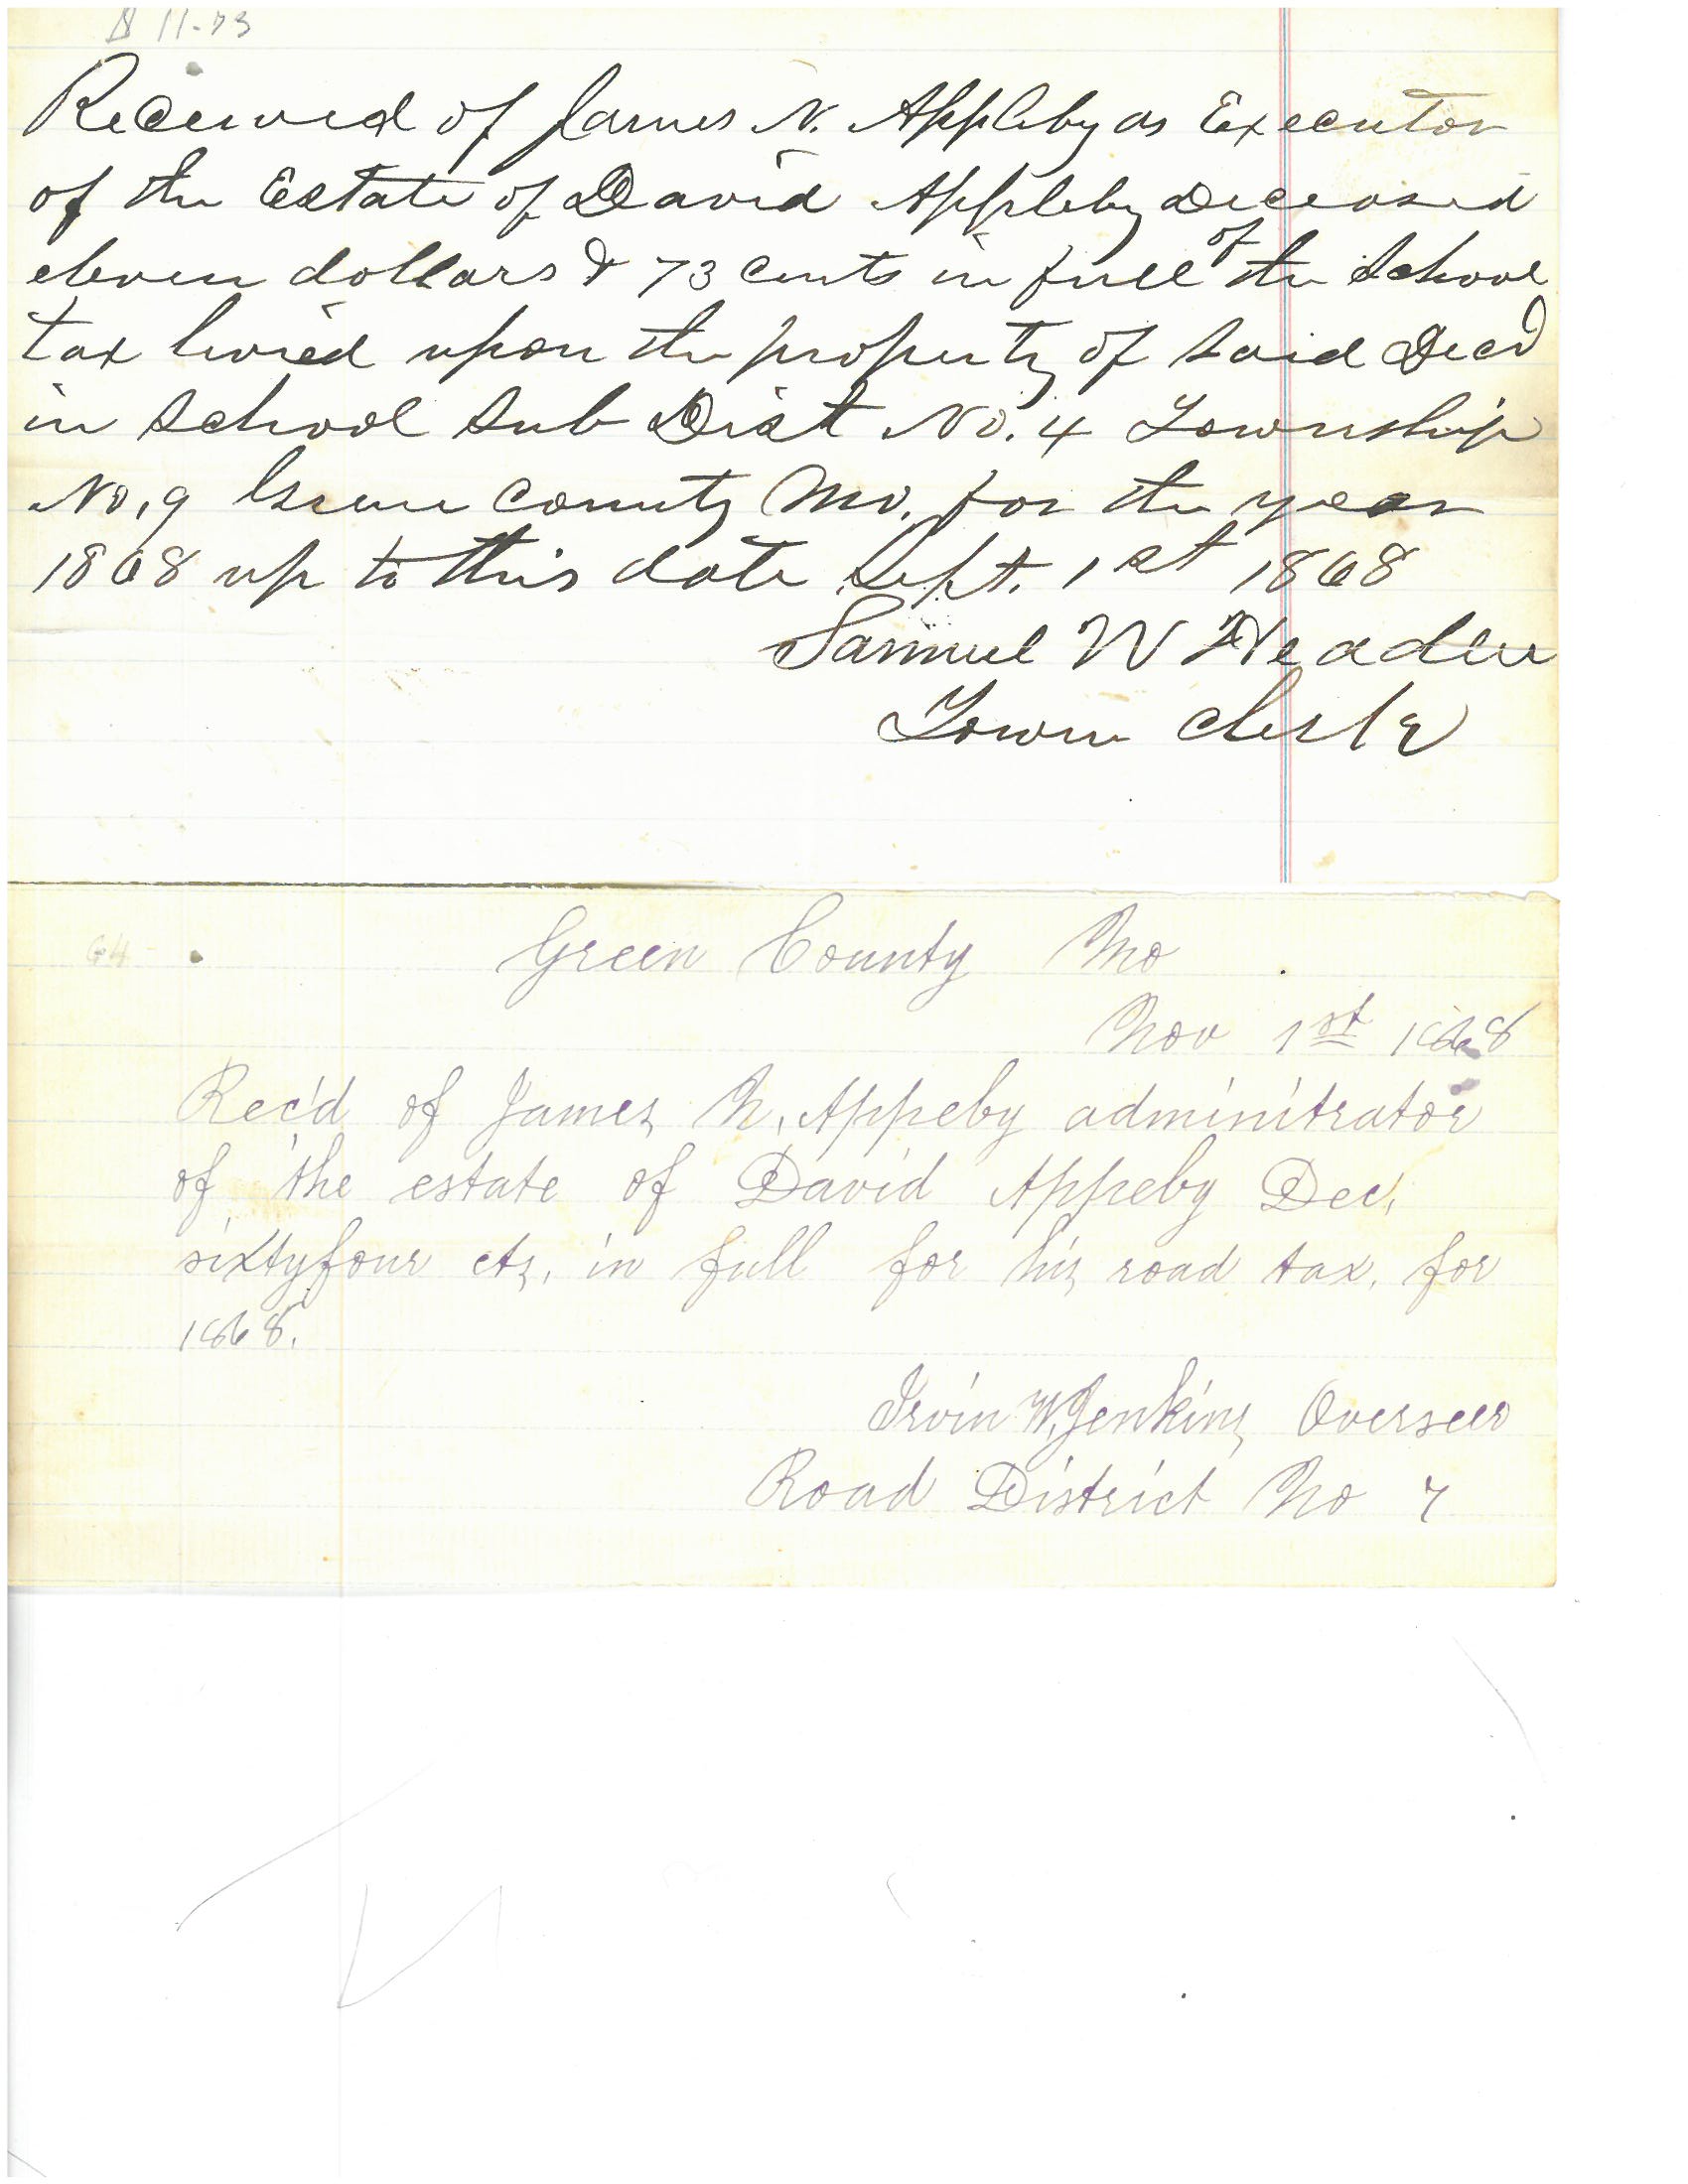 $ 11.73
Received of James N. Appleby as Executor
of the Estate of David Appleby Deceased
eleven dollars & 73 cents in full of the School
tax levied upon the property of said Decd
in School Sub Dist No. 4 Township
No. 9 Greene County Mo. for the year
1868 up to this date Sept. 1st 1868
Samuel W Headlee
Town Clerk
64
Green County Mo
Nov 1st 1868
Rec'd of James N. Appeby adminitrator
of the estate of David Appeby Dec.
sixtyfour cts. in full for his road tax. for
1868.
Irvin W. Jenkins Overseer
Road District No 7